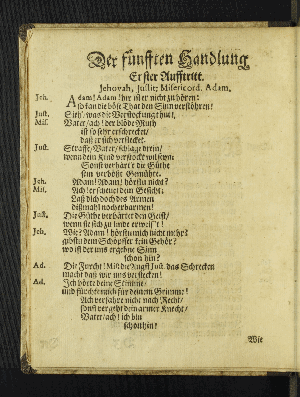 Der fünfften Handlung
Erster Aufftritt.
Jehovah, Justit; Misericord. Adam.
Jeh. Adam! Adam! hir ist er nicht zu hören:
so kan die böse That den Sinn verstöhren!
Just. Sieh, was die Verstockung thut,
Mis. Vater / ach! der blöde Muth
ist so sehr erschrecket /
daß er sich verstecket.
Just. Straffe / Vater / schlage drein /
wenn dein Kind verstockt wil seyn:
Sonst verhärt't die Güthe
sein verböst Gemühte.
Jeh. Adam! Adam! hörstu nicht?
Mis. Ach! er scheuet dein Gesicht;
Laß dich doch des Armen
dißmahl noch erbarmen!
Just. Die Güthe verhärtet den Geist /
wenn sie sich zu linde erweis't!
Jeh. Wie? Adam! hörstu mich nicht mehr?
gibstu dem Schöpffer kein Gehör?
wo ist der uns ergebne Sinn
schon hin?
Ad. Die Furcht! Mis. die Angst Just. das Schrecken
macht daß wir uns verstecken!
Ad. Ich hörte deine Stimme /
und fürchte mich für deinem Grimme!
Ach verfahre nicht nach Recht /
sonst vergeht dein armer Knecht /
Vater / ach! ich bin
schon hin!
Wie